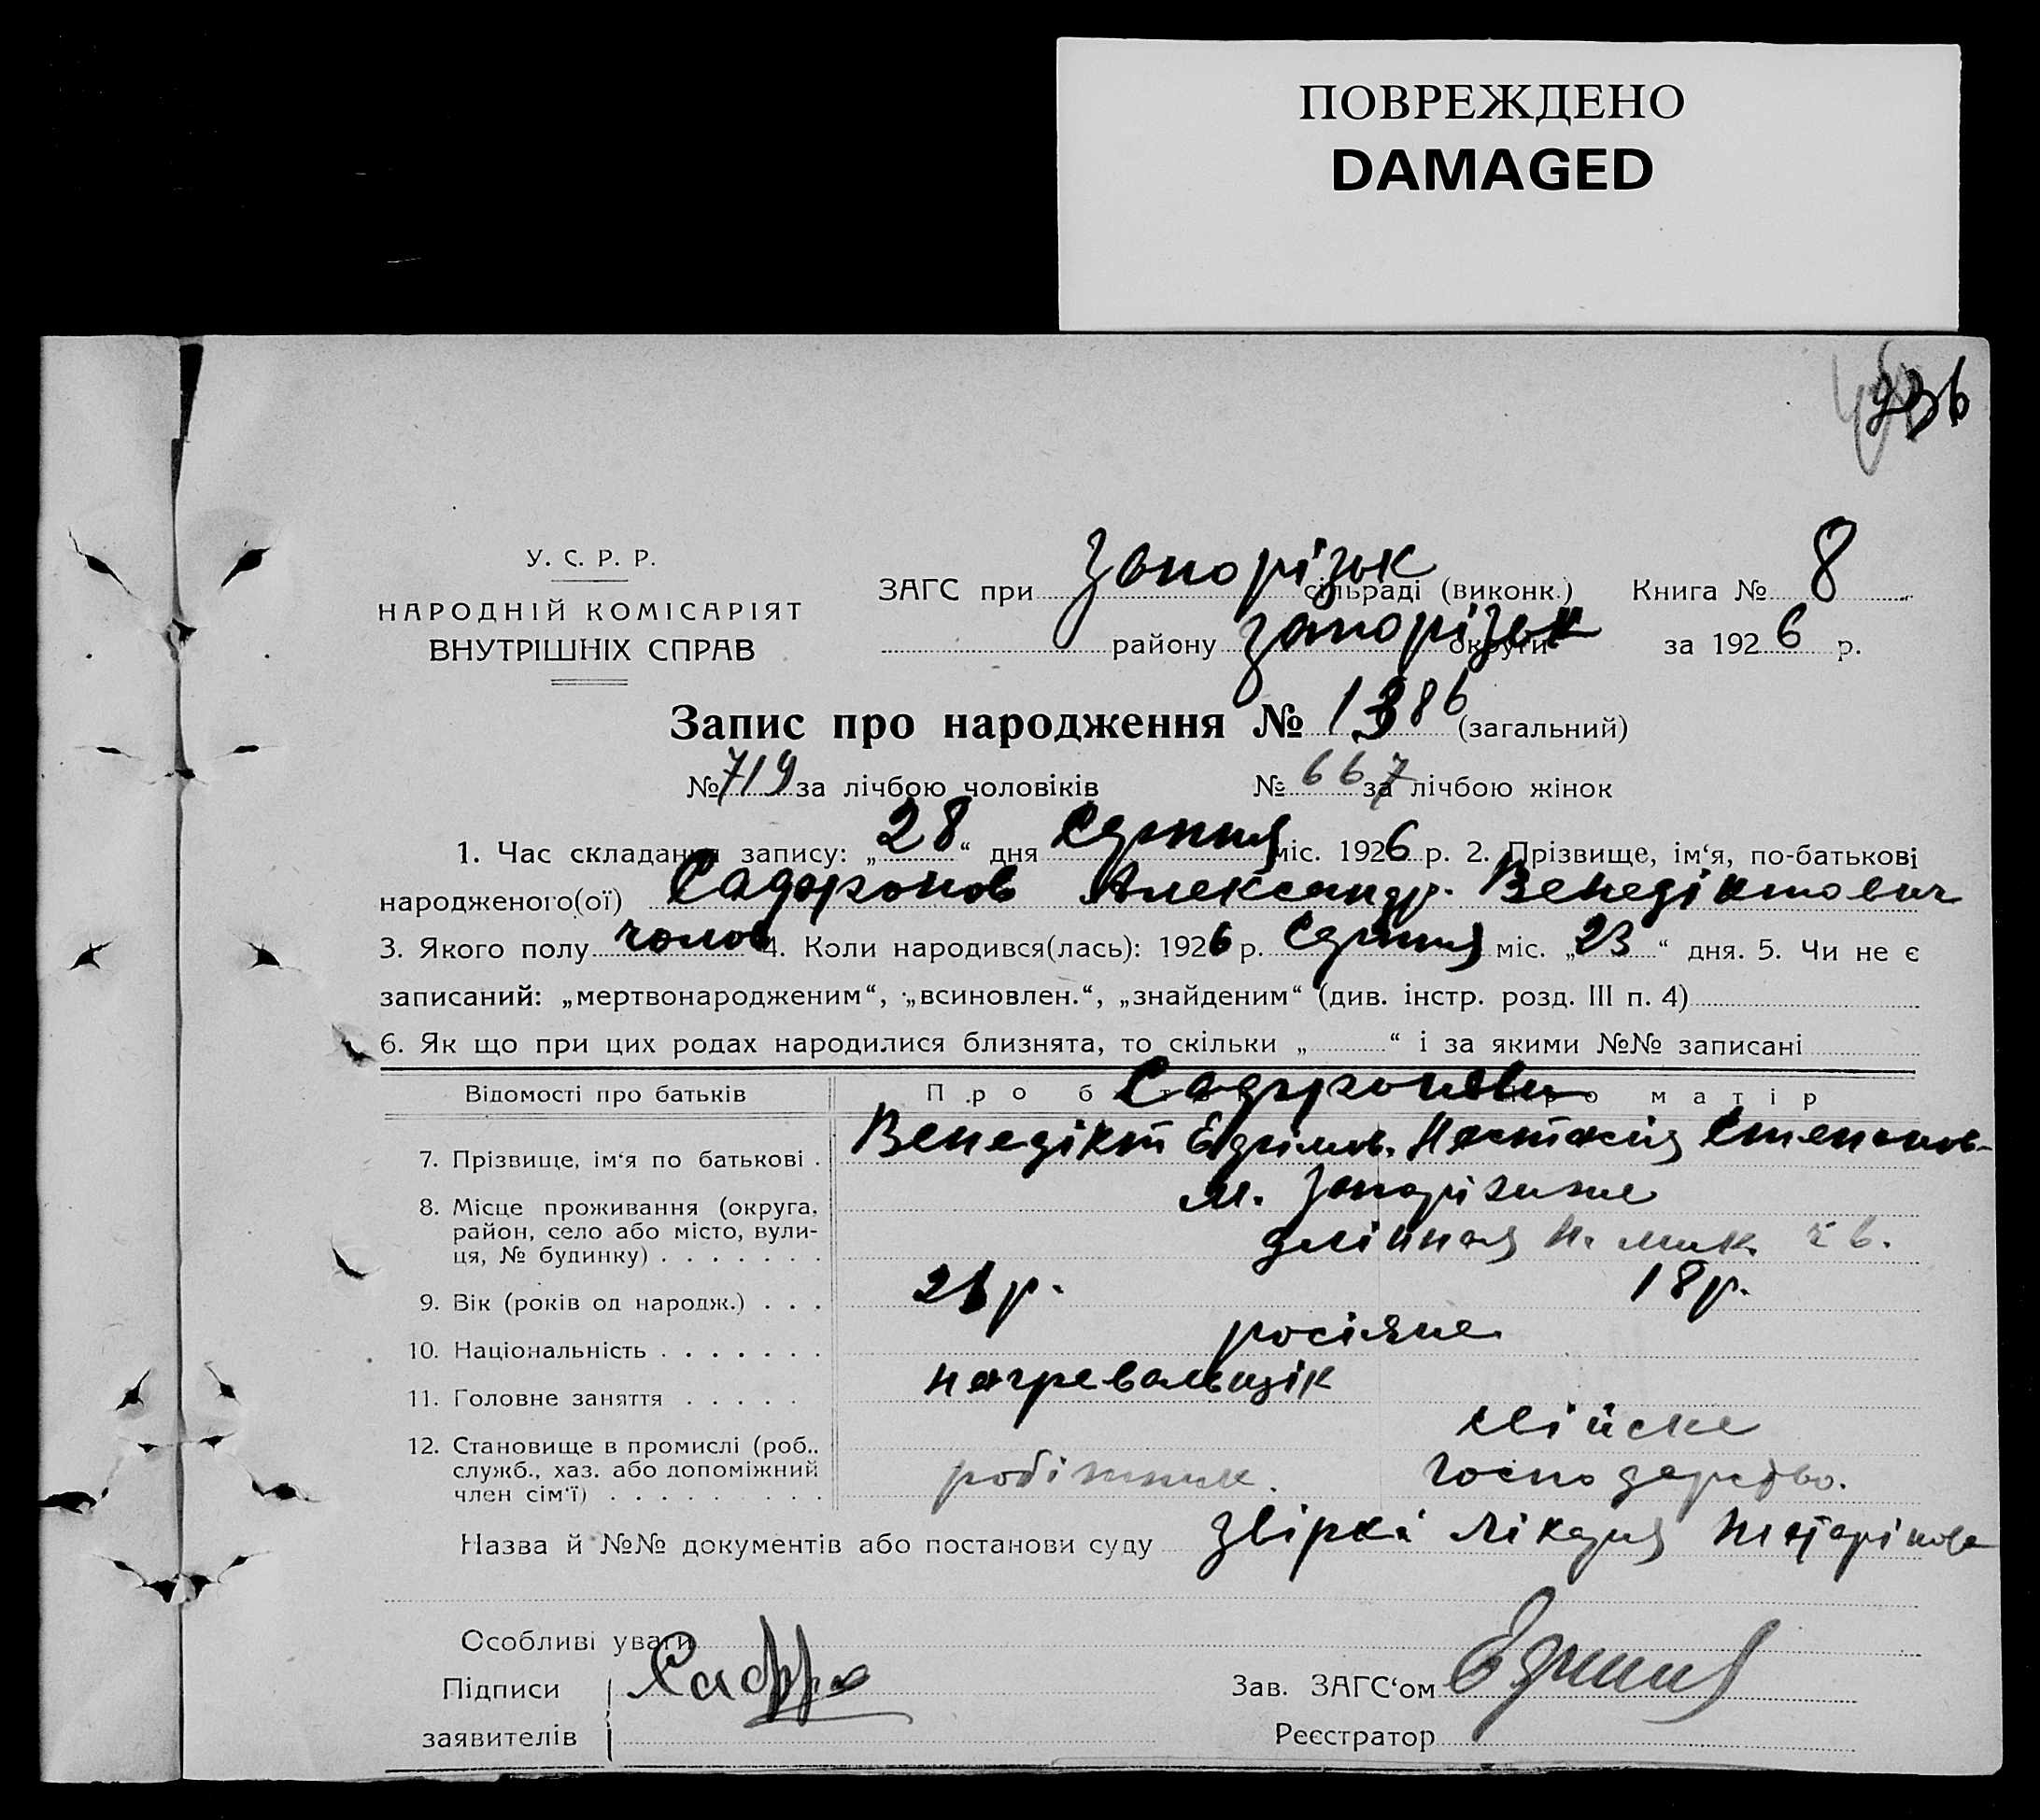 ПОВРЕЖДЕНО
DAMAGED
У. С. Р. Р.
НАРОДНІЙ КОМІСАРІЯТ
ВНУТРІШНІХ СПРАВ
ЗАГС при Запорізьк сільраді (виконк.) Книга № 8
району Запорізьк округи за 1926 р.
Запис про народження № 1386 (загальний)
№ 719 за лічбою чоловіків № 667 за лічбою жінок
1. Час складання запису: „28“ дня Серпня міс. 1926 р. 2. Прізвище, ім‘я, по-батькові
народженого(ої) Александр. Венедіктович
3. Якого полу чолов 4. Коли народився(лась): 1926 р. Серпня міс. „23“ дня. 5. Чи не є
записаний: „мертвонародженим“, „всиновлен.“, „знайденим“ (див. інстр. розд. III п. 4)
6. Як що при цих родах народилися близнята, то скільки „ “ і за якими №№ записані
Відомості про батьків Про б матір
7. Прізвище, ім‘я по батькові . Венедікт Ефімов. Настасія Степанов-
8. Місце проживання (округа, район, село або місто, вулиця, № будинку) . . . . . . . м. Запоріжжє
9. Вік (років од народж.) . . . р. 18 р.
10. Національність . . . . . . . росіяне
11. Головне заняття . . . . . нагревальщік
12. Становище в промислі (роб., служб., хаз. або допоміжний член сім‘ї) . . . . . . . . робітник. господарство.
Назва й №№ документів або постанови суду
Особливі уваги
Підписи
заявителів
Зав. ЗАГС‘ом
Реєстратор